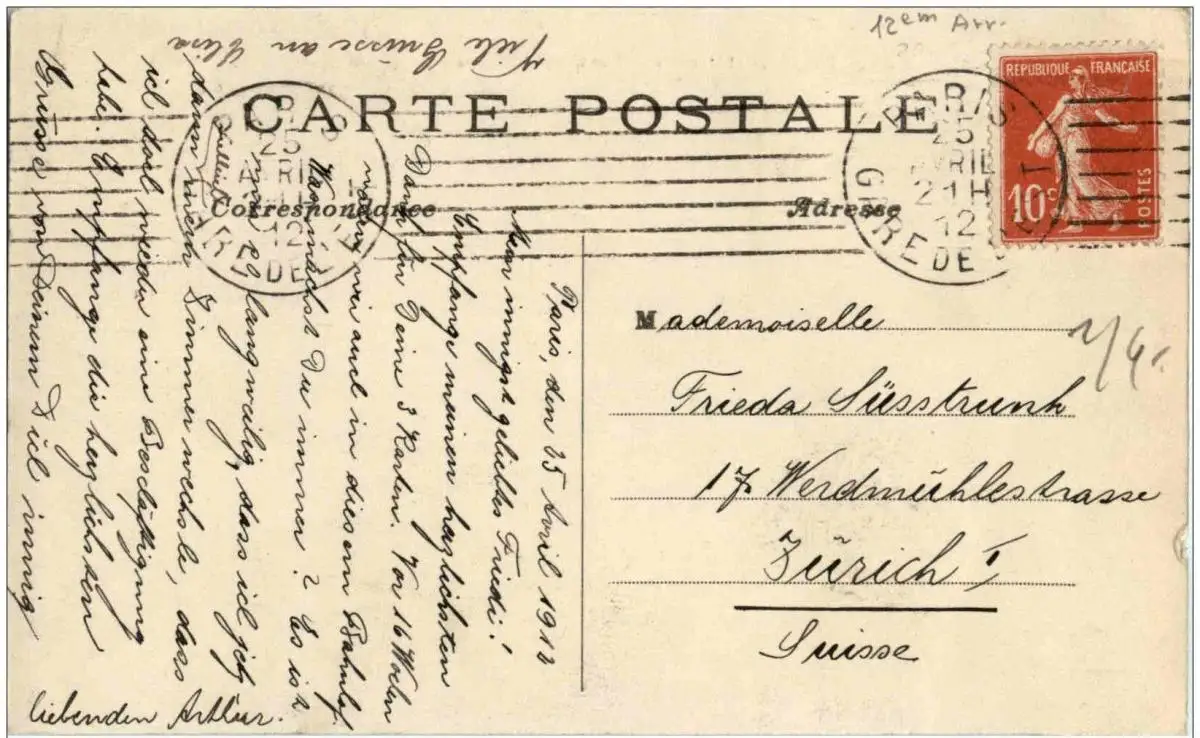 12em Arr.
Viele Grüsse an Elisa
CARTE POSTALE
REPUBLIQUE FRANÇAISE
10c
POSTES
PARIS
25
AVRIL
12
GARE DE
PARIS
25
AVRIL
21H
12
GARE DE
Correspondance
Adresse
Paris, den 25 April 1912
Mein innigst geliebtes Friedi!
Empfange meinen herzlichsten
Dank für Deine 3 Karten. Vor 16 Wochen
waren wir auch in diesem Bahnhof.
Was machst Du immer? Es ist
so langweilig, dass ich jetzt
darum mein Zimmer wechsle, dass
ich bald wieder eine Beschäftigung
habe. Empfange die herzlichsten
Grüsse von Deinem Dich innig
liebenden Arthur.
Mademoiselle
Frieda Süsstrunk
17 Werdmühlestrasse
Zürich I
Suisse